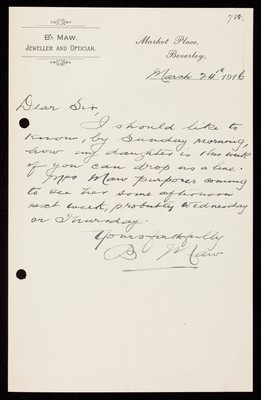 788.
B. MAW,
JEWELLER AND OPTICIAN.
Market Place,
Beverley,
March 24th 1916
Dear Sir,
I should like to
know, by Sunday morning,
how my daughter is this week
if you can drop us a line.
Mrs Maw purposes coming
to see her some afternoon
next week, probably Wednesday
or Thursday.
Yours faithfully
B Maw